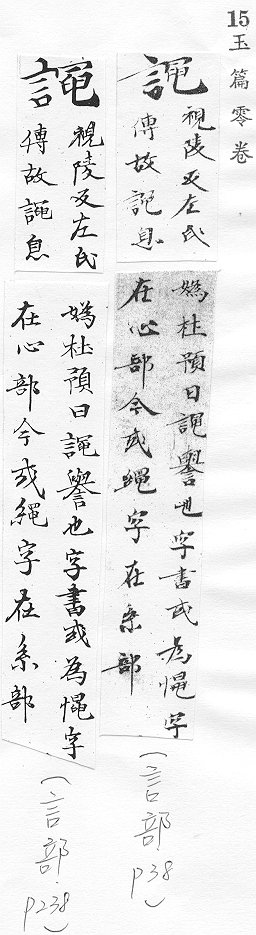 15 玉篇零卷
譝
視陵反左氏
傳故譝息
媯杜預曰譝譽也字書或為憴字
在心部今或繩字在系部
(言部 p38)
譝
視陵反左氏
傳故譝息
媯杜預曰譝譽也字書或為憴字
在心部今或繩字在系部
(言部 p238)